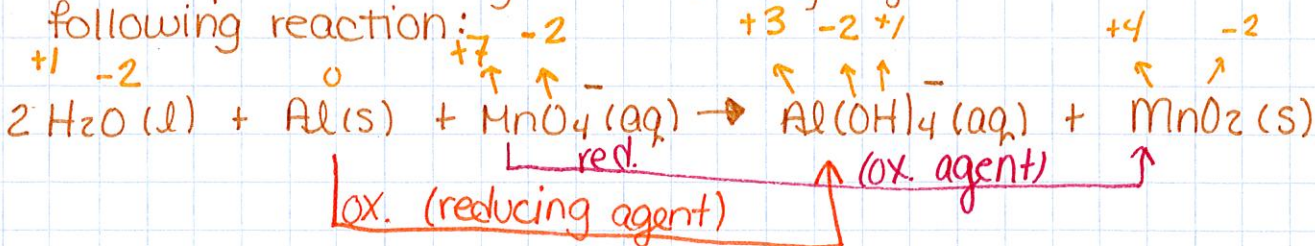 following reaction:
+7 -2 +3 -2 +1 +4 -2
+1 -2 0
2 H₂O (l) + Al(s) + MnO₄⁻(aq) → Al(OH)₄⁻(aq) + MnO₂(s)
red. (ox. agent)
ox. (reducing agent)